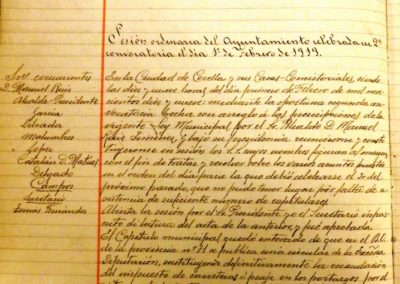 Sesión ordinaria del Ayuntamiento celebrada en 2ª
convocatoria el día 1º de Febrero de 1919.
Sres concurrentes
D. Manuel Ruiz
Alcalde-Presidente
García
Malumbres
López
Catalán D. Matías
Delgado
Campos
Secretario
Tomás Fernández
En la Ciudad de Corella y sus Casas Consistoriales, siendo
las diez y nueve horas del día primero de Febrero de mil nove-
cientos diez y nueve: mediante la oportuna segunda con-
vocatoria hecha con arreglo a las prescripciones de la
vigente Ley Municipal por el Sr. Alcalde D. Manuel
y bajo su presidencia
en sesión los Sres. cuyos nombres figuran al margen
con el fin de tratar y resolver sobre los varios asuntos puestos
en el orden del día para la que debió celebrarse el 30 del
próximo pasado, que no pudo tener lugar por falta de a-
sistencia de suficiente número de capitulares.
Abierta la sesión por el Sr. Presidente y el Secretario
dió lectura del acta de la anterior, y fué aprobada.
El Capítulo municipal quedó enterado de que en el B.O.
de la provincia nº 11 se publica una circular de la Excma
Diputación, definitivamente la recaudación
del impuesto de carreteras o peaje en los portazgos, por el